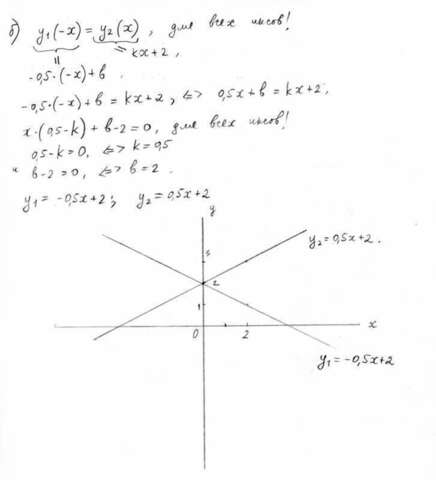 б) y₁(-x) = y₂(x), для всех иксов!
= kx+2,
-0,5·(-x)+b.
-0,5·(-x)+b = kx+2, <=> 0,5x+b = kx+2,
x·(0,5-k)+b-2=0, для всех иксов!
0,5-k=0, <=> k=0,5
и b-2=0, <=> b=2.
y₁=-0,5x+2; y₂=0,5x+2
y
y₂=0,5x+2.
3
2
1
0 2 x
y₁=-0,5x+2